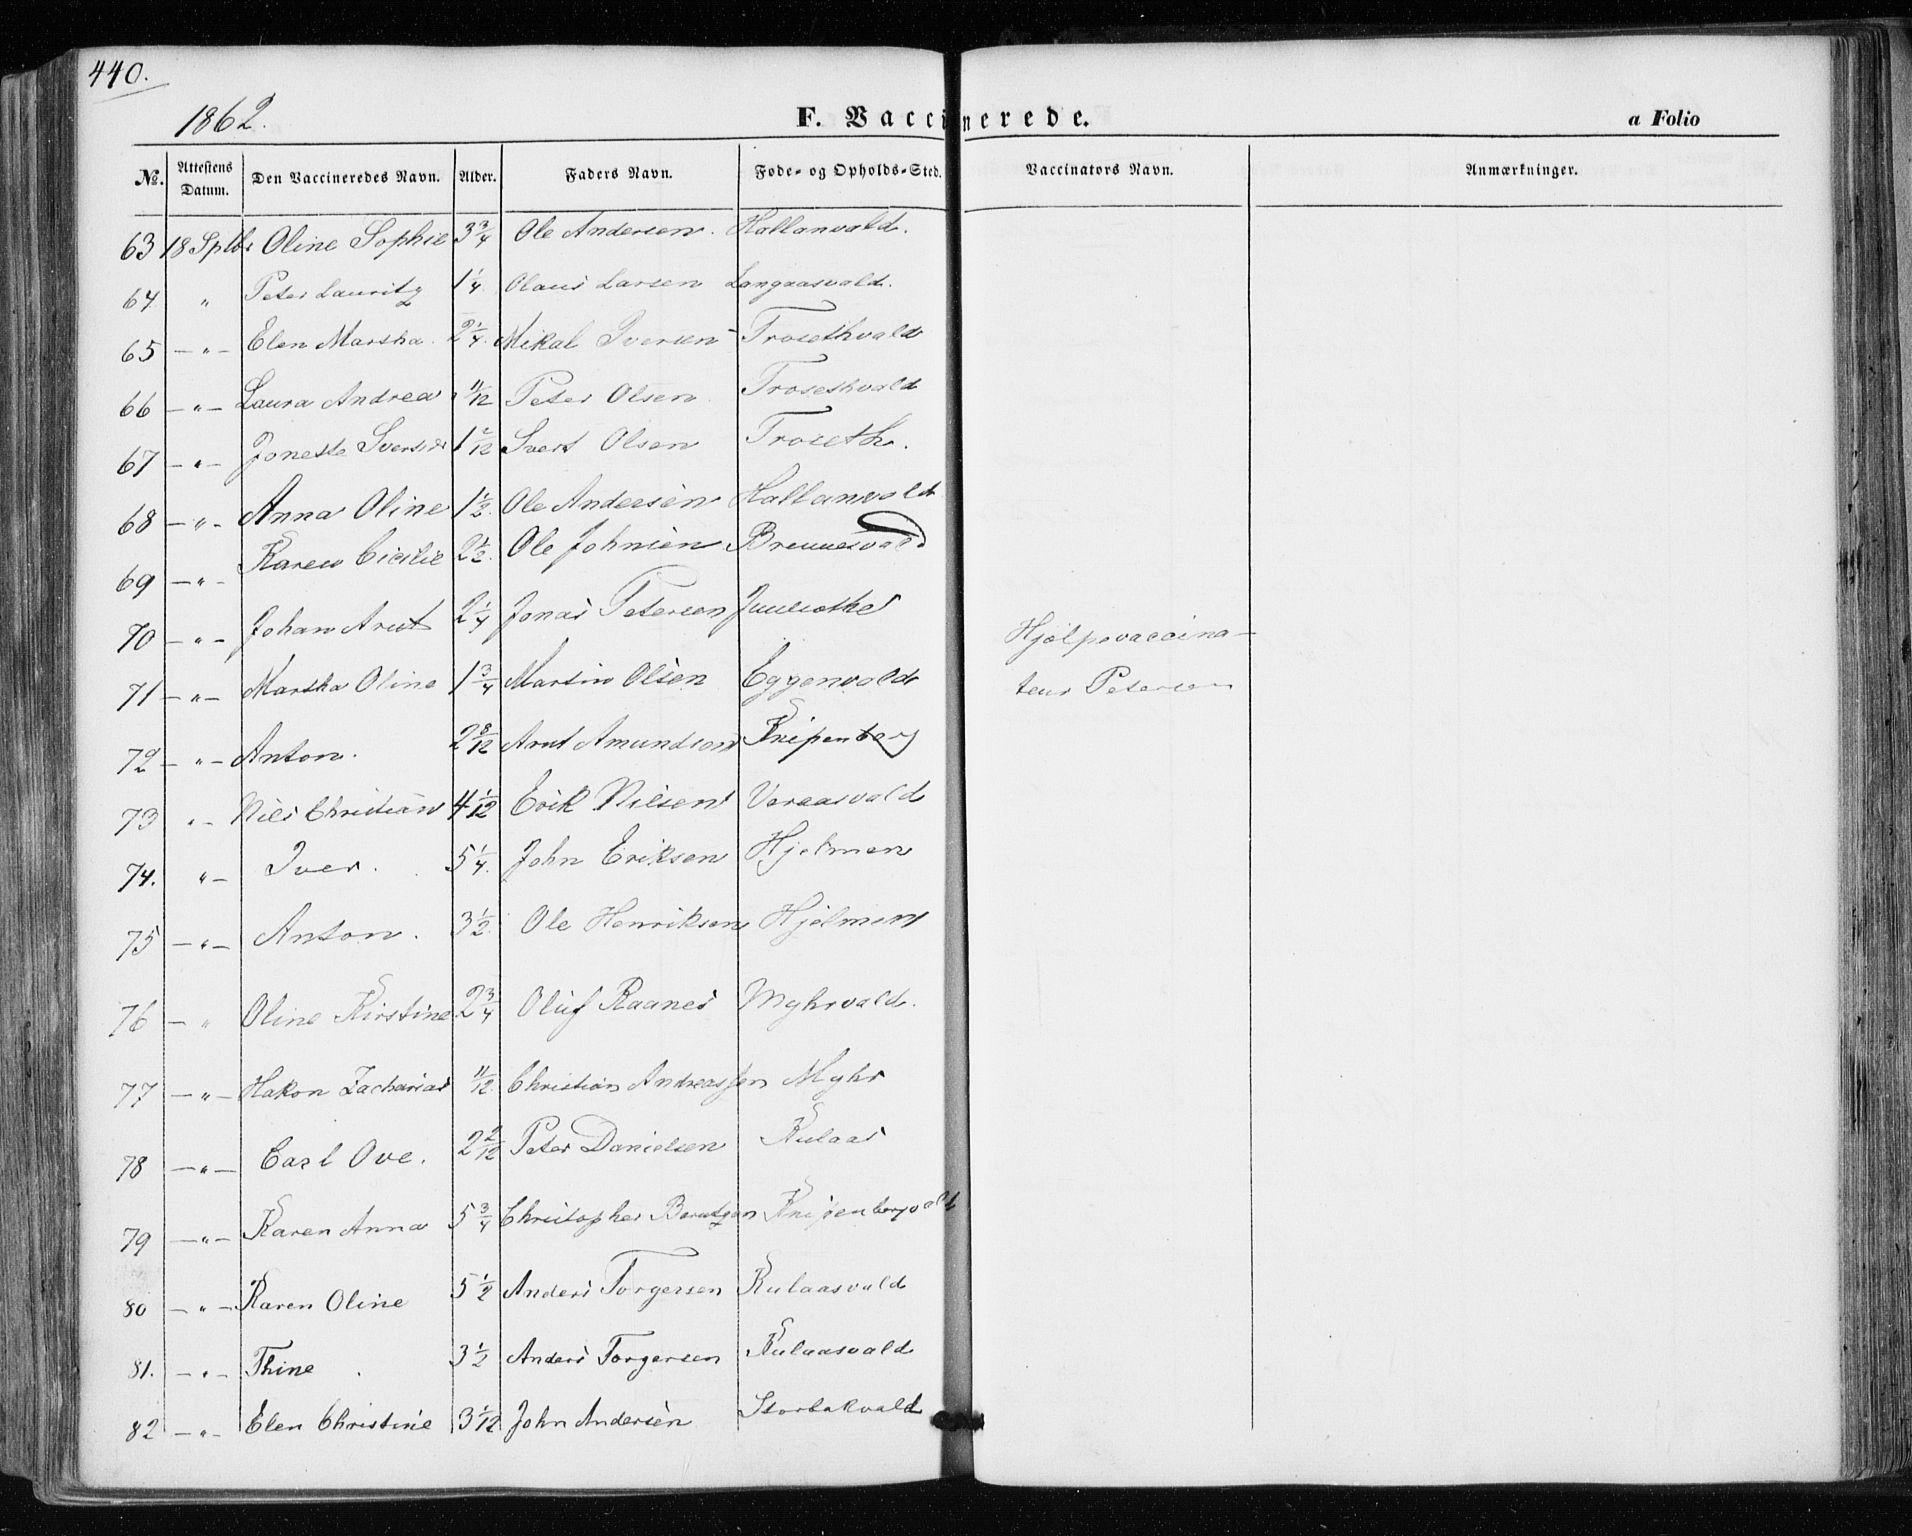 440.
1862.
F. Vaccinerede.
a Folio
No. Attestens Datum. Den Vaccineredes Navn. Alder. Faders Navn. Føde- og Opholds-Sted. Vaccinators Navn. Anmærkninger.
63 18 Sptbr Oline Sophie 3 3/4 Ole Andersen. Hallanvald.
64 " Peter Lauritz 1 1/4 Olaus Larsen Langaasvald.
65 - " - Elen Martha. 2 1/4. Mikal Iversen Trosethvald
66 - " - Laura Andrea 11/12 Peter Olsen Trosethvald
67 - " - Jonette 1 2/12 Ivert Olsen Troseth.
68 - " - Anna Oline 1 1/2. Ole Andersen Hallanvald
69 - " - Karen Cicilie 2 1/2. Ole Johnsen Brennesvald
70 - " - Johan Arnt 2 1/4 Jonas Petersen
71 - " - Martha Oline 1 3/4 Martin Olsen Eggenvald
72 - " - Anton. 2 8/12 Arnt Amundsen Knipenberg
73 " - Nils Christian 4 1/12 Erik Nilsen Veraasvald
74. " - Iver. 5 1/4. John Eriksen Hjelmen
75 - " - Anton. 3 1/2. Ole Henriksen Hjelmen
76 - " Oline Kirstine 2 3/4 Oluf Raanes Myhrvald.
77 - " - Hakon Zacharias 11/12. Christian Andreassen Myhr
78 - " - Carl Ove. 2 2/12 Peter Danielsen Kulaas
79 - " - Karen Anna 5 3/4 Christopher Berntzen Knipenbergvald
80 - " - Karen Oline 5 1/2 Anders Torgersen Kulaasvald
81. - " - Thine 3 1/2 Anders Torgersen Kulaasvald
82 - " - Elen Christine 3 1/12 John Andersen Storbakvald
Hjelpevaccina-
teur Petersen